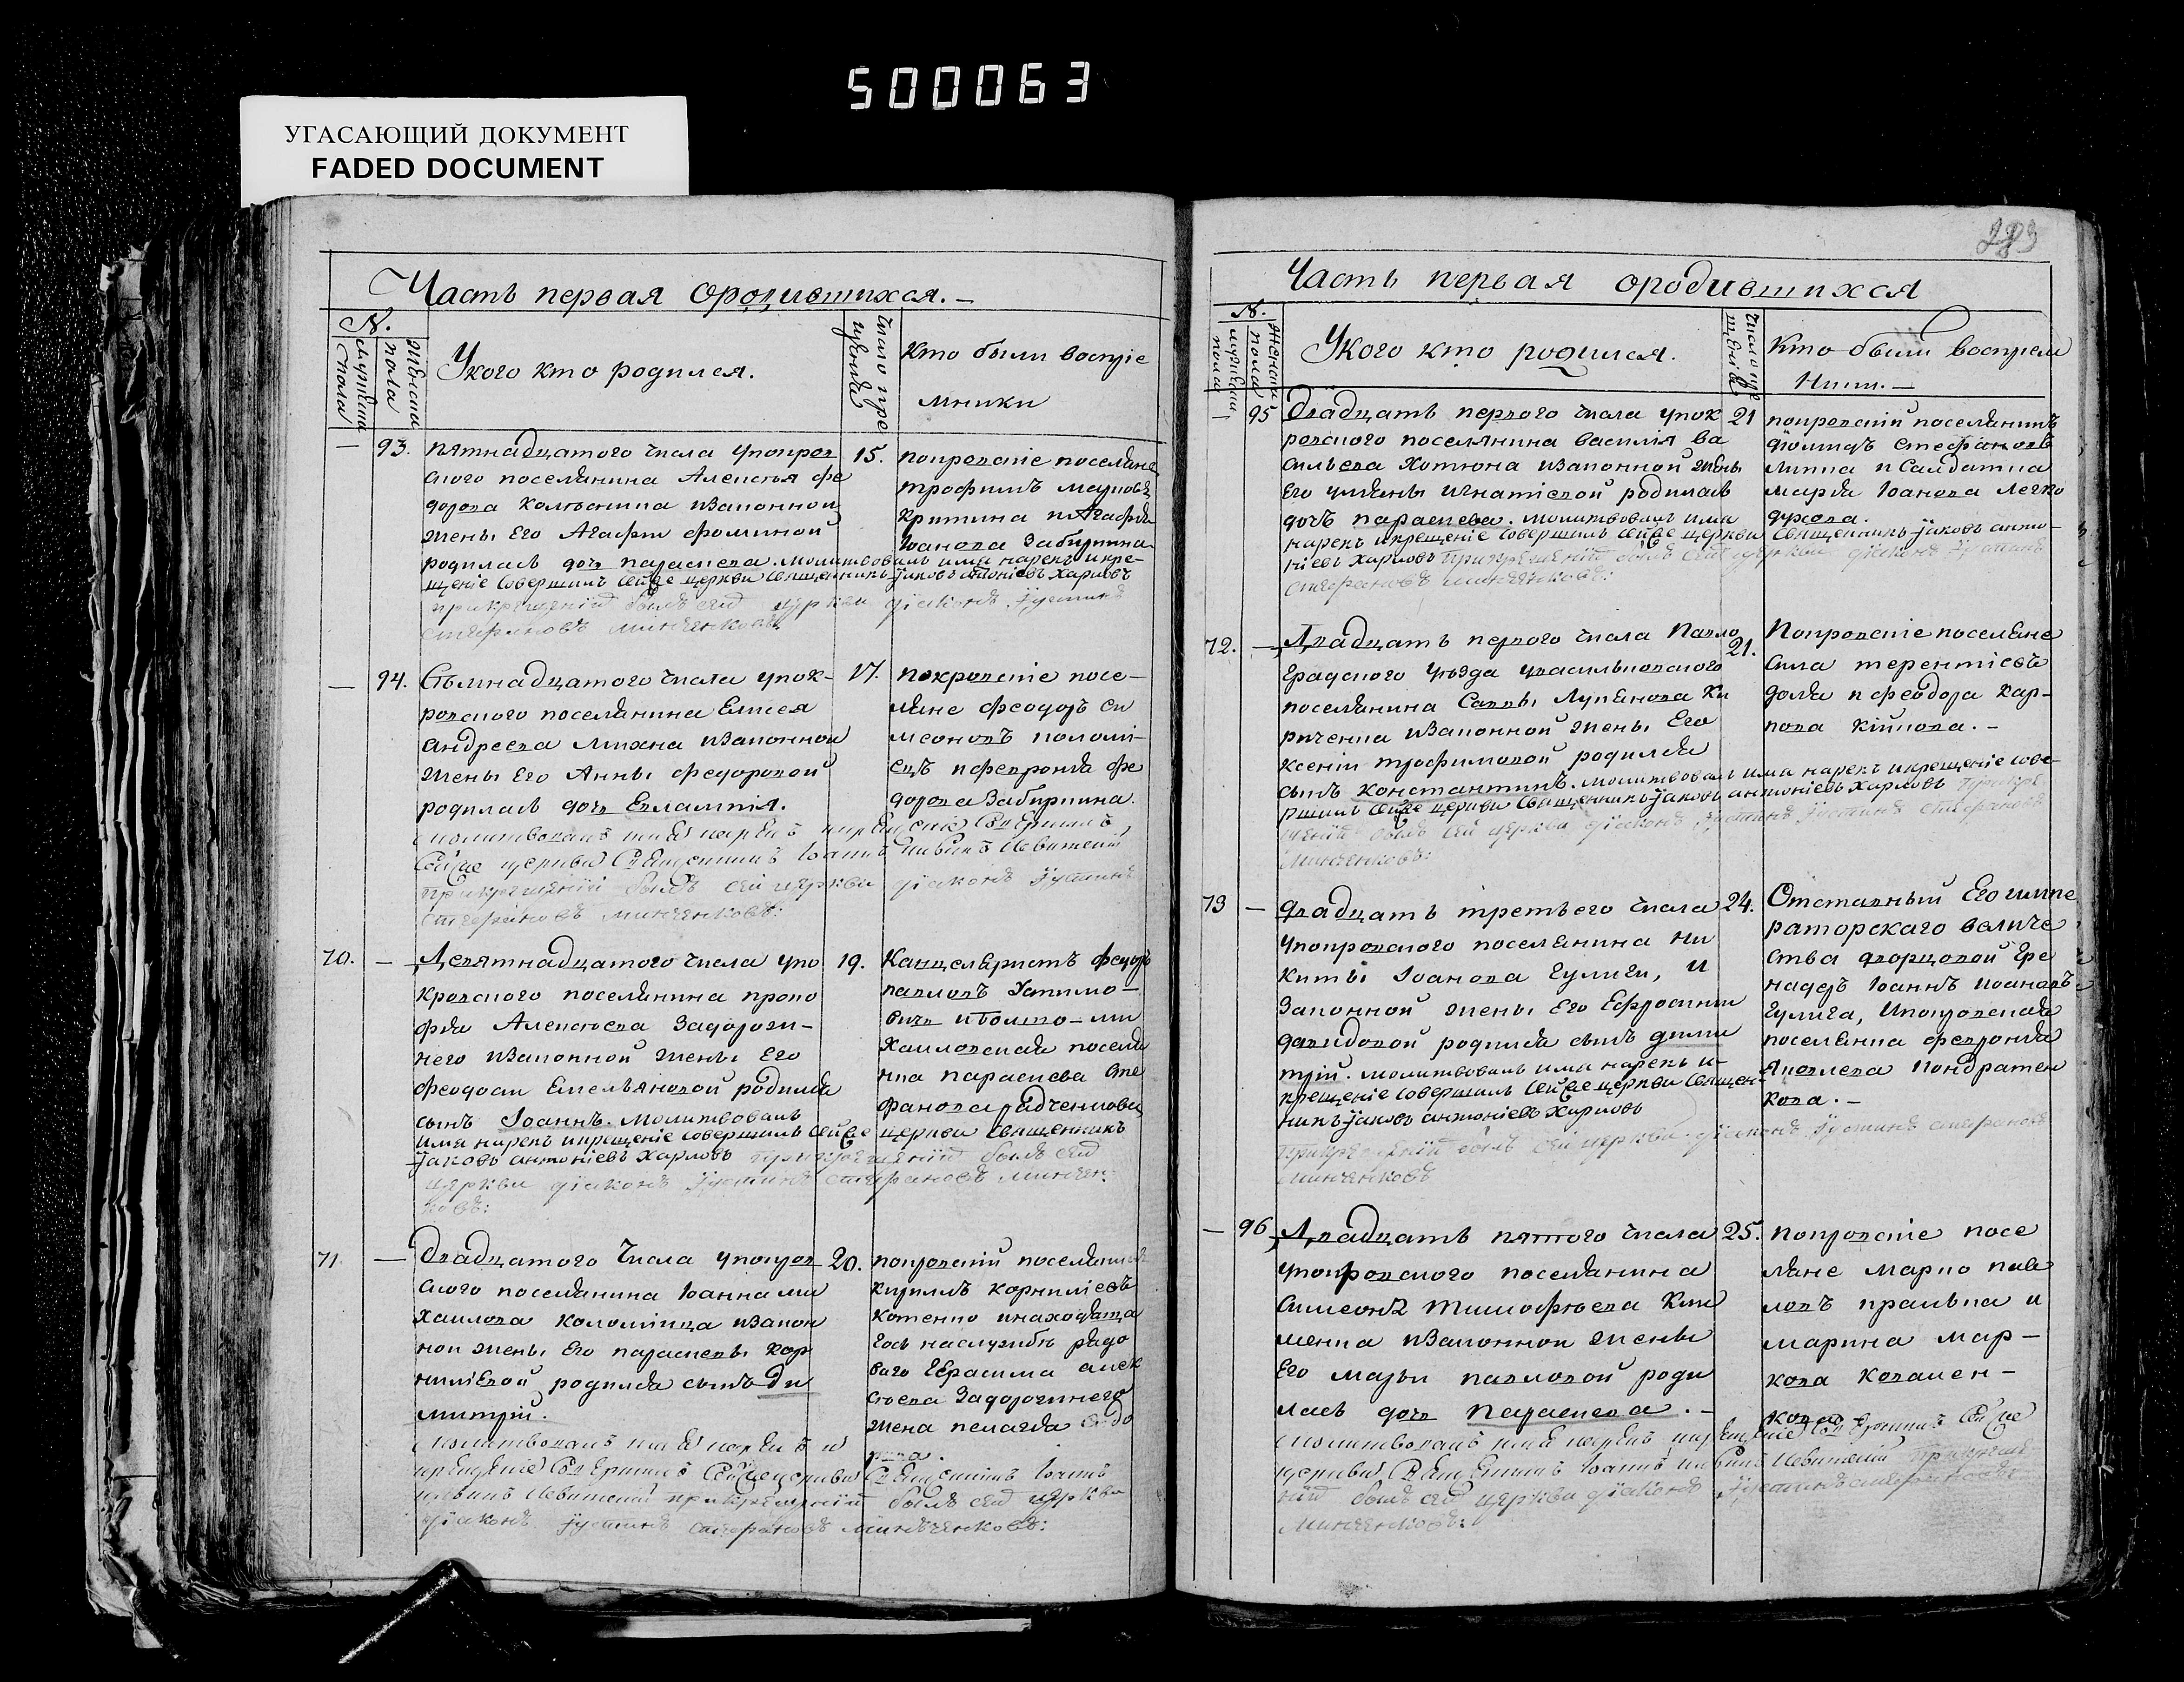 500063
УГАСАЮЩИЙ ДОКУМЕНТ
FADED DOCUMENT
Часть первая ородившихся.
№.
мужеска пола
женска пола
Укого кто родился.
число крещенія
Кто были воспріе
мники
— 93. пятнадцатого числа упокров
ского поселянина Алексѣя Фе
дорова
изаконной
жены Его Агафіи Фоминой
родилась дочь Параскева. молитвовалъ имя нарекъ икре-
щеніе совершилъ сейже церкви священникъ Іаковъ Антоніевъ Харловъ
прикрещеніи былъ сей церкви діаконъ Іустинъ
Стефановъ Минченковъ:
15. покровскіе поселяне
трофимъ
и Агафія
Іоанова Забиркина
— 94. Сѣмнадцатого числа упок-
ровского поселянина Елисея
Андреева Михна изаконной
жены Его Анны Федоровой
родилась дочь Евлампія.
молитвовалъ имя нарекъ икрещеніе совершилъ
сейже церкви священникъ Іоаннъ Левитскій
прикрещеніи былъ сей церкви діаконъ Іустинъ
Стефановъ Минченковъ:
17. покровскіе посе-
ляне Феодоръ Си
меоновъ коломі-
ецъ и Февронія Фе
дорова Забиркина.
70. — Девятнадцатого числа упо
кровского поселянина проко
фія Алексѣева Задорож-
него изаконной жены Его
Феодосіи Емельяновой родился
сынъ Іоаннъ. молитвовалъ
имя нарекъ икрещеніе совершилъ сейже церкви священникъ
Іаковъ Антоніевъ Харловъ прикрещеніи былъ сей
церкви діаконъ Іустинъ Стефановъ Минчен-
ковъ:
19. Канцеляристъ Федоръ
павловъ Устимо-
вичъ
хайловская поселя
нка параскева Сте
фанова
71. — Двадцатого числа упокров
ского поселянина Іоанна ми
хаилова коломійца изакон
ной жены Его параскевы Кор
ниліевой родился сынъ Ди
митрій.
молитвовалъ имя нарекъ и
крещеніе совершилъ сейже церкви священникъ Іоаннъ
Левитскій прикрещеніи былъ сей церкви
діаконъ Іустинъ Стефановъ Минченковъ:
20. покровскій поселянинъ
кириллъ корниліевъ
Котенко инаходяща
гось наслужбѣ рядо
ваго Герасима Алек
сѣева Задорожнего
жена пелагія
283
Часть первая ородившихся
№.
мужеска пола
женска пола
Укого кто родился.
число крещенія
Кто были воспріем
ники.—
— 95 Двадцать первого числа упок
ровского поселянина василія Ва
сильева Хотюна изаконной жены
Его ульяны Игнатіевой родилась
дочь параскева. молитвовалъ имя
нарекъ икрещеніе совершилъ сейже церкви священникъ Іаковъ Анто-
ніевъ Харловъ прикрещеніи былъ сей церкви діаконъ Іустинъ
Стефановъ Минченковъ:
21 покровскій поселянинъ
Стефановъ
и Салдатка
марія Іоанова Легко
духова.
72. — Двадцать первого числа Павло
градского уѣзда
поселянина Саввы Лукянова Ки
риченка изаконной жены Его
Ксеніи трофимовой родился
сынъ Константинъ. молитвовалъ имя нарекъ икрещеніе сове-
ршилъ сейже церкви священникъ Іаковъ Антоніевъ Харловъ прикре
щеніи былъ сей церкви діаконъ Іустинъ Іустинъ Стефановъ
Минченковъ:
21. Покровскіе поселяне
Сила терентіевъ
доля и Феодора Кар-
пова
73 — Двадцать третьего числа
упокровского поселянина Ни
киты Іоанова Гулиги, и
Законной жены Его Ефросиніи
давидовой родился сынъ дими
трій. молитвовалъ имя нарекъ и-
крещеніе совершилъ сейже церкви священ-
никъ Іаковъ Антоніевъ Харловъ
прикрещеніи былъ сей церкви діаконъ Іустинъ Стефановъ
Минченковъ
24. Отставный Его импе
раторскаго величе
ства дворцовой Гре
надеръ Іоаннъ Иоановъ
Гулига, Ипокровская
поселянка Февронія
Яковлева Кондратен
кова.—
— 96 Двадцать пятого числа
упокровского поселянина
Симеона тимофѣева Кли
менка изаконной жены
Его маріи павловой роди
лась дочь параскева.—
молитвовалъ имя нарекъ икрещеніе совершилъ сейже
церкви священникъ Іоаннъ Левитскій прикреще
ніи былъ сей церкви діаконъ Іустинъ Стефановъ
Минченковъ:
25. покровскіе посе
ляне марко пав
ловъ кралька и
марина мар-
кова